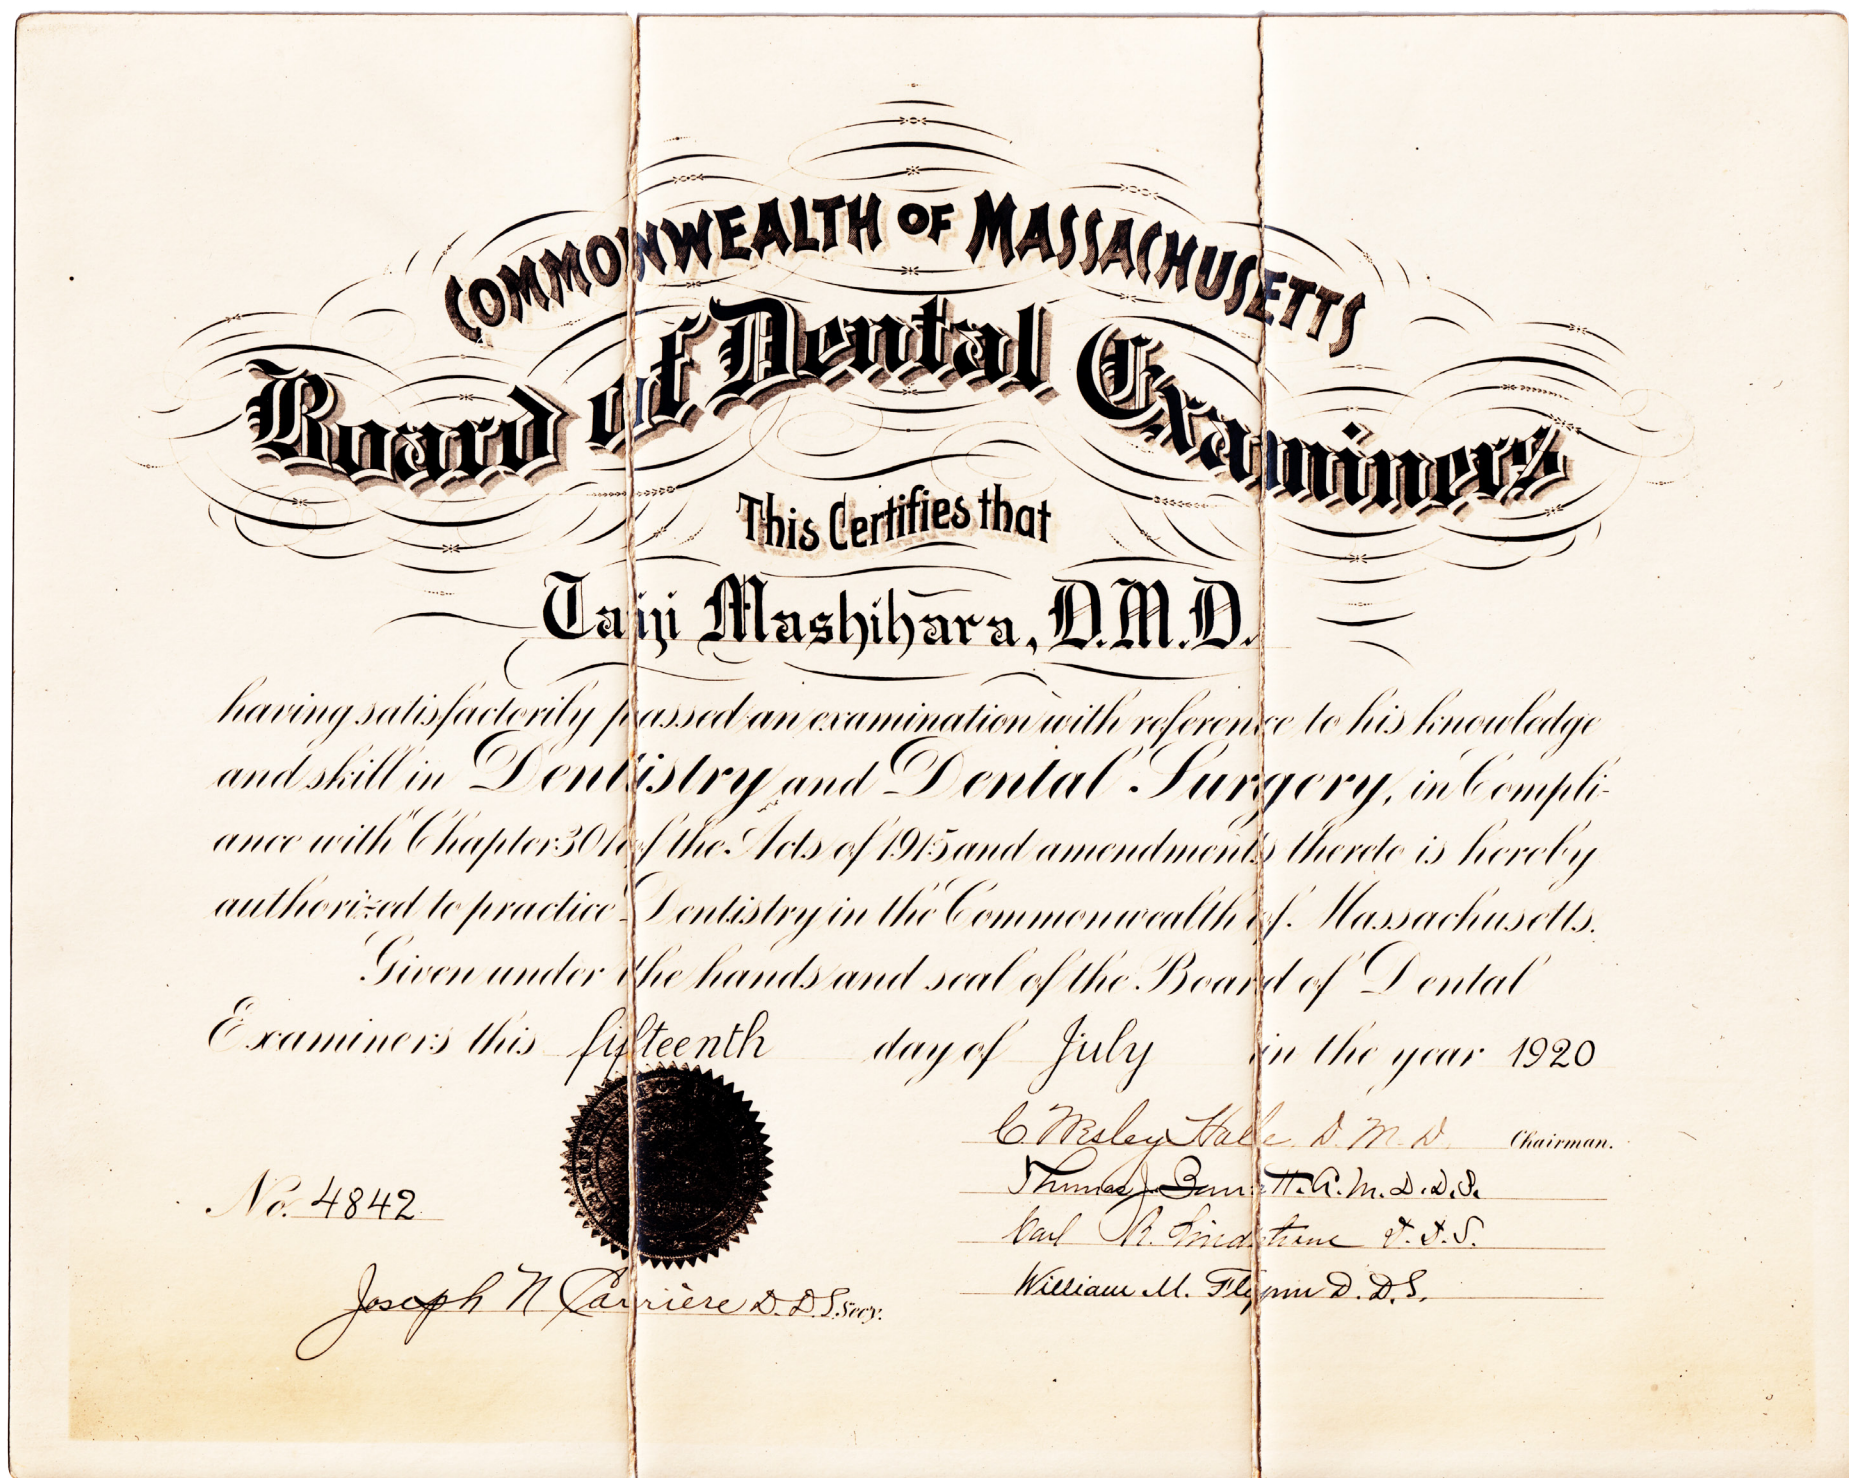 COMMONWEALTH OF MASSACHUSETTS
Board of Dental Examiners
This Certifies that
Taiji Mashihara, D.M.D.
having satisfactorily passed an examination with reference to his knowledge
and skill in Dentistry and Dental Surgery, in Compli-
ance with Chapter 301 of the Acts of 1915 and amendments thereto is hereby
authorized to practice Dentistry in the Commonwealth of Massachusetts.
Given under the hands and seal of the Board of Dental
Examiners this fifteenth day of July in the year 1920
C. Wesley Hale D.M.D. Chairman.
Thomas J. Barrett. A.M. D.D.S.
No. 4842
Carl R. Lindstrom D.D.S.
William M. Flynn D.D.S.
Joseph N Carrière D.D.S. Secy.